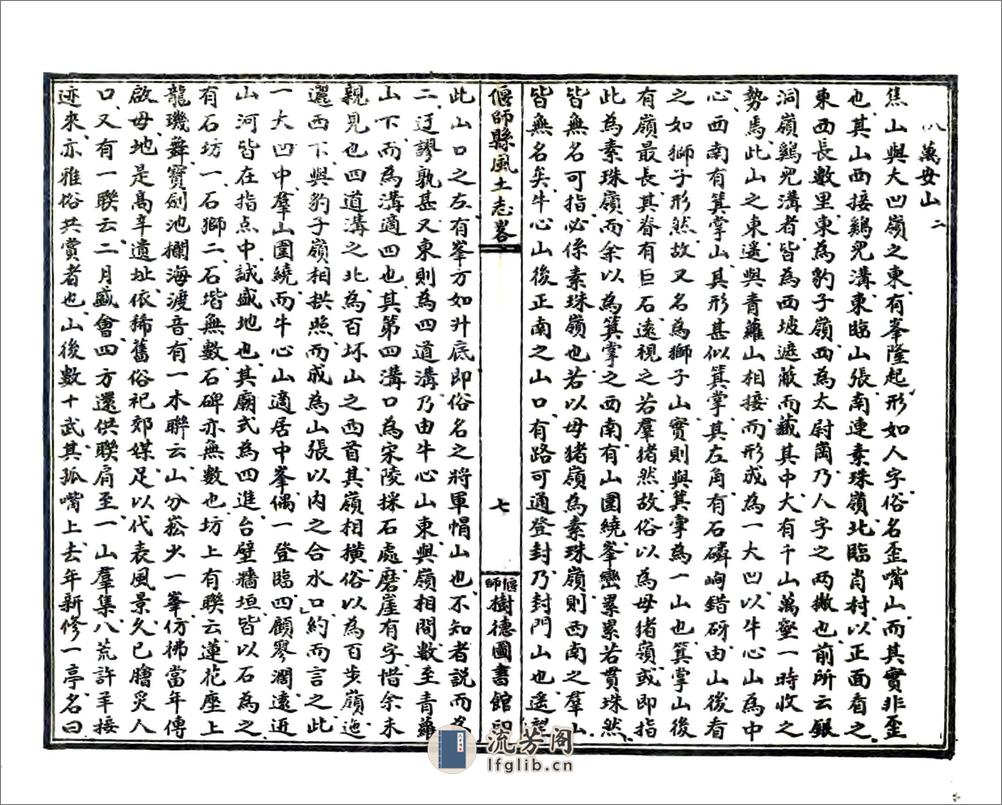 八萬安山二
焦山與大凹嶺之東有峯隆起形如人字俗名歪嘴山而其實非歪
也其山西接鷄兕溝東臨山張南連素珠嶺北臨肖村以正面看之
東西長數里東為豹子嶺西為太尉崗乃人字之兩撇也前所云銀
洞嶺鷄兕溝者皆為西坡遮蔽而藏其中大有千山萬壑一時收之
勢焉此山之東遙與青蘿山相接而形成為一大凹以牛心山為中
心西南有箕掌山其形甚似箕掌其左角有石磷峋錯砑由山後看
之如獅子形然故又名為獅子山實則與箕掌為一山也箕掌山後
有嶺最長其脊有巨石遠視之若羣猪然故俗以為母猪嶺或即指
此為素珠嶺而余以為箕掌之西南有山圍繞峯巒累累若貫珠然
皆無名可指必係素珠嶺也若以母猪嶺為素珠嶺則西南之羣山
皆無名矣牛心山後正南之山口有路可通登封乃封門山也遙望
偃師縣風土志畧
七
偃師樹德圖書館印
此山口之左有峯方如升底即俗名之將軍帽山也不知者説而為
二迂謬孰甚又東則為四道溝乃由牛心山東與嶺相間數至青蘿
山下而為溝適四也其第四溝口為宋陵採石處磨崖有字惜余未
親見也四道溝之北為百坏山之西首其嶺相橫俗以為百步嶺迤
邐西下與豹子嶺相拱照而成為山張以内之合水口約而言之此
一大凹中羣山圍繞而牛心山適居中峯偶一登臨四顧寥濶遠近
山河皆在指点中誠盛地也其廟式為四進台壁牆垣皆以石為之
有石坊一石獅二石堦無數石碑亦無數也坊上有聯云蓮花座上
龍璣舞寶劍池欄海渡音有一木聯云山分崧火一峯仿彿當年傳
啟母地是高辛遺址依稀舊俗祀郊媒足以代表風景久已膾炙人
口又有一聯云二月盛會四方還供聯肩至一山羣集八荒許羊接
迹來亦雅俗共賞者也山後數十武其孤嘴上去年新修一亭名曰
流芳阁
lfglib.cn